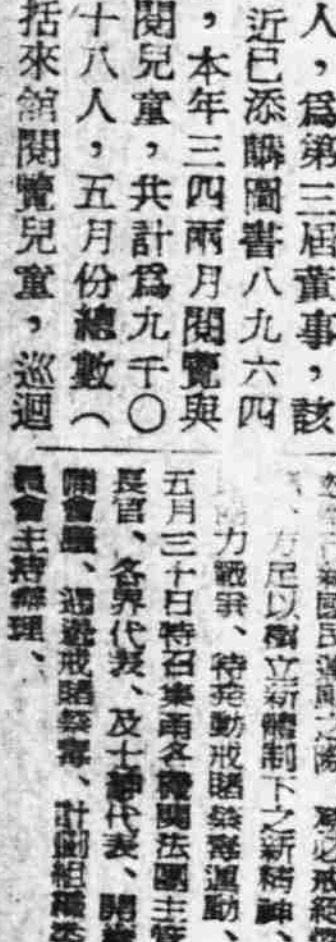 人，爲第三屆董事，該
近已添購圖書八九六四
，本年三四兩月閱覽與
閱兒童，共計爲九千〇
十八人，五月份總數（
括來舘閱覽兒童，巡迴
國民運動之際
方足以樹立新體制下之新精神、
力戰爭、特發動戒賭禁毒運動、
五月三十日特召集甬各機關法團主管
長官、各界代表、及十鎮代表、開
開會議、
員會主持辦理、